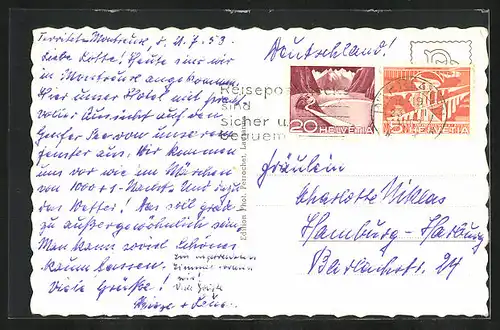 Territet-Montreux, d. 21.7.53
Liebe Lotte! Heute sind wir
in Montreux angekommen.
Hier unser Hotel mit
voller Aussicht auf den
Genfer See von unserem
Fenster aus. Wir kommen
uns vor wie im Märchen
von 1000 + 1-Nacht. Und dazu
das Wetter! Das soll grad
zu außergewöhnlich sein.
Man kann soviel Schönes
kaum fassen.
Viele Grüße!
Im
Zimmer waren
wir!
Viele Grüße
Deutschland!
Reisepost
sind
sicher u
bequem
20 HELVETIA
5 HELVETIA
Edition Phot. Perrochet, Lausanne
Fräulein
Charlotte Niklas
Hamburg-Harburg
24